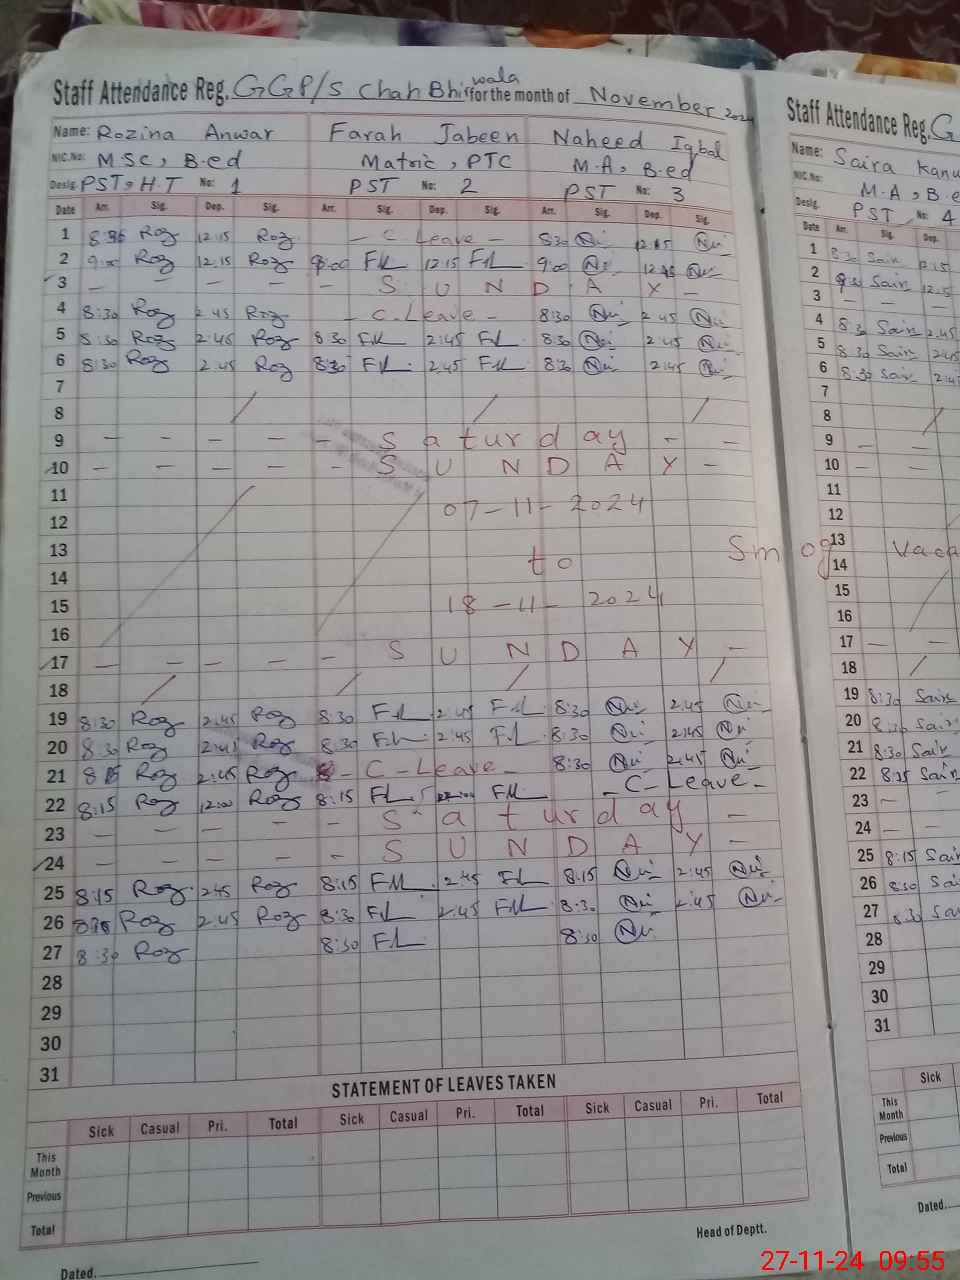 Staff Attendance Reg. GGP/S Chah Bhir wala for the month of November 2024
Name: Rozina Anwar Farah Jabeen Naheed Iqbal
NIC.No: M.SC, B.ed Matric, PTC M.A, B.ed
Desig. PST, H.T No: 1 PST No: 2 PST No: 3
Date Arr. Sig. Dep. Sig. Arr. Sig. Dep. Sig. Arr. Sig. Dep. Sig.
1 Roz 12:15 Roz - C Leave - 8:30
2 9:00 Roz 12:15 Roz 9:00 12:15 9:00
3 - - - - - S U N D A Y -
4 8:30 Roz 2:45 Roz - C-Leave - 8:30 2:45
5 8:30 Roz 2:45 Roz 8:30 2:45 8:30 2:45
6 8:30 Roz 2:45 Roz 8:30 2:45 8:30 2:45
7
8
9 - - - - - S a t u r d a y - -
10 - - - - - S U N D A Y -
11 07-11-2024
12
13 to
14
15 18-11-2024
16
17 - - - - - S U N D A Y -
18
19 8:30 Roz 2:45 Roz 8:30 2:45 8:30 2:45
20 8:30 Roz 2:45 Roz 8:30 2:45 8:30 2:45
21 Roz 2:45 Roz - C-Leave - 8:30 2:45
22 8:15 Roz 12:00 Roz 8:15 - C-Leave -
23 - - - - - S a t u r d a y -
24 - - - - - S U N D A Y -
25 8:15 Roz 2:45 Roz 8:15 2:45 8:15 2:45
26 Roz 2:45 Roz 8:30 2:45 8:30 2:45
27 8:30 Roz 8:30 8:30
28
29
30
31
STATEMENT OF LEAVES TAKEN
Sick Casual Pri. Total Sick Casual Pri. Total Sick Casual Pri. Total
This Month
Previous
Total
Head of Deptt.
Dated.
Staff Attendance Reg. G
Name: Saira Kanw
NIC.No: M.A, B.e
Desig. PST No: 4
Date Arr. Sig. Dep.
1 8:30 Sair 12:15
2 9:00 Sair 12:15
3 - - -
4 8:30 Sair 2:45
5 8:30 Sair 2:45
6 8:30 Sair 2:45
7
8
9 - -
10 - -
11
12
13 Smog Vaca
14
15
16
17 - -
18
19 8:30 Sair
20 8:30 Sair
21 8:30 Sair
22 8:15 Sair
23 - -
24 - -
25 8:15 Sair
26 8:30 Sa
27 8:30 Sa
28
29
30
31
Sick
This Month
Previous
Total
Dated.
27-11-24 09:55